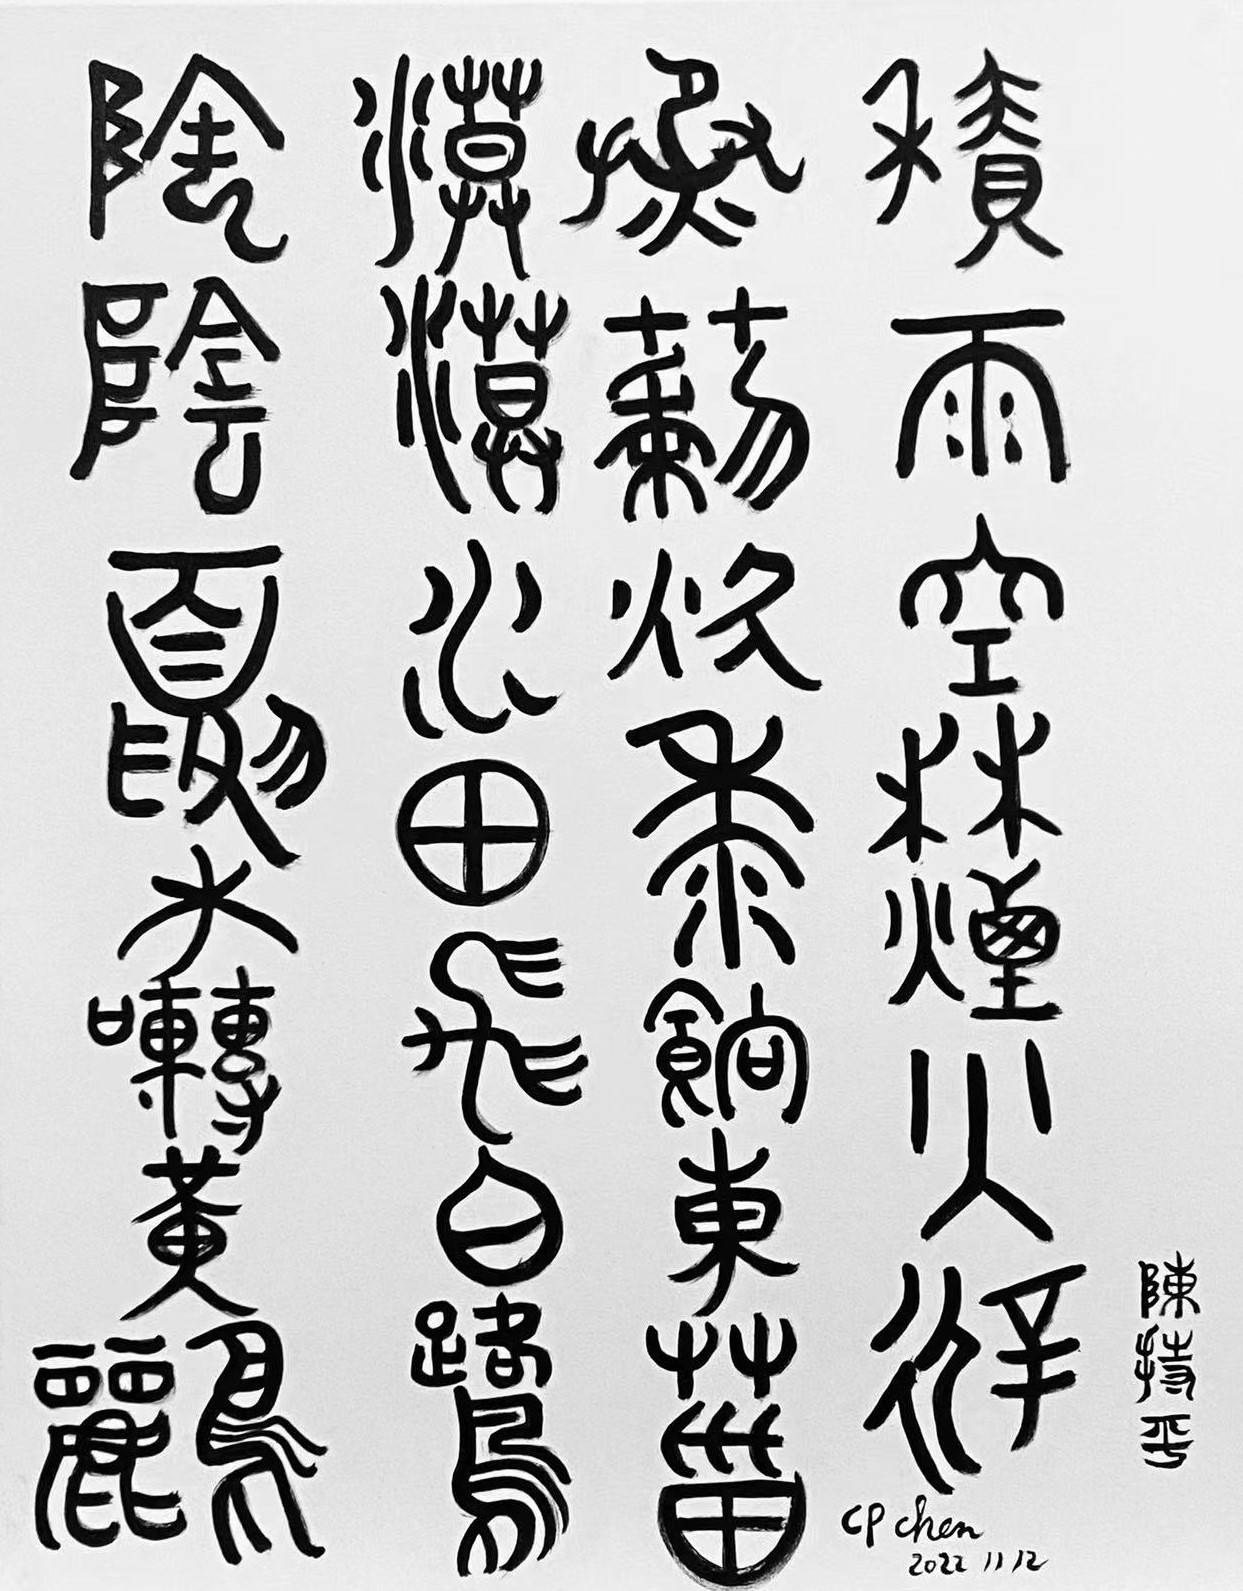 積雨空林煙火遲
蒸藜炊黍餉東菑
漠漠水田飛白鷺
陰陰夏木囀黃鸝
陳持平
CP chen
2022 11 12